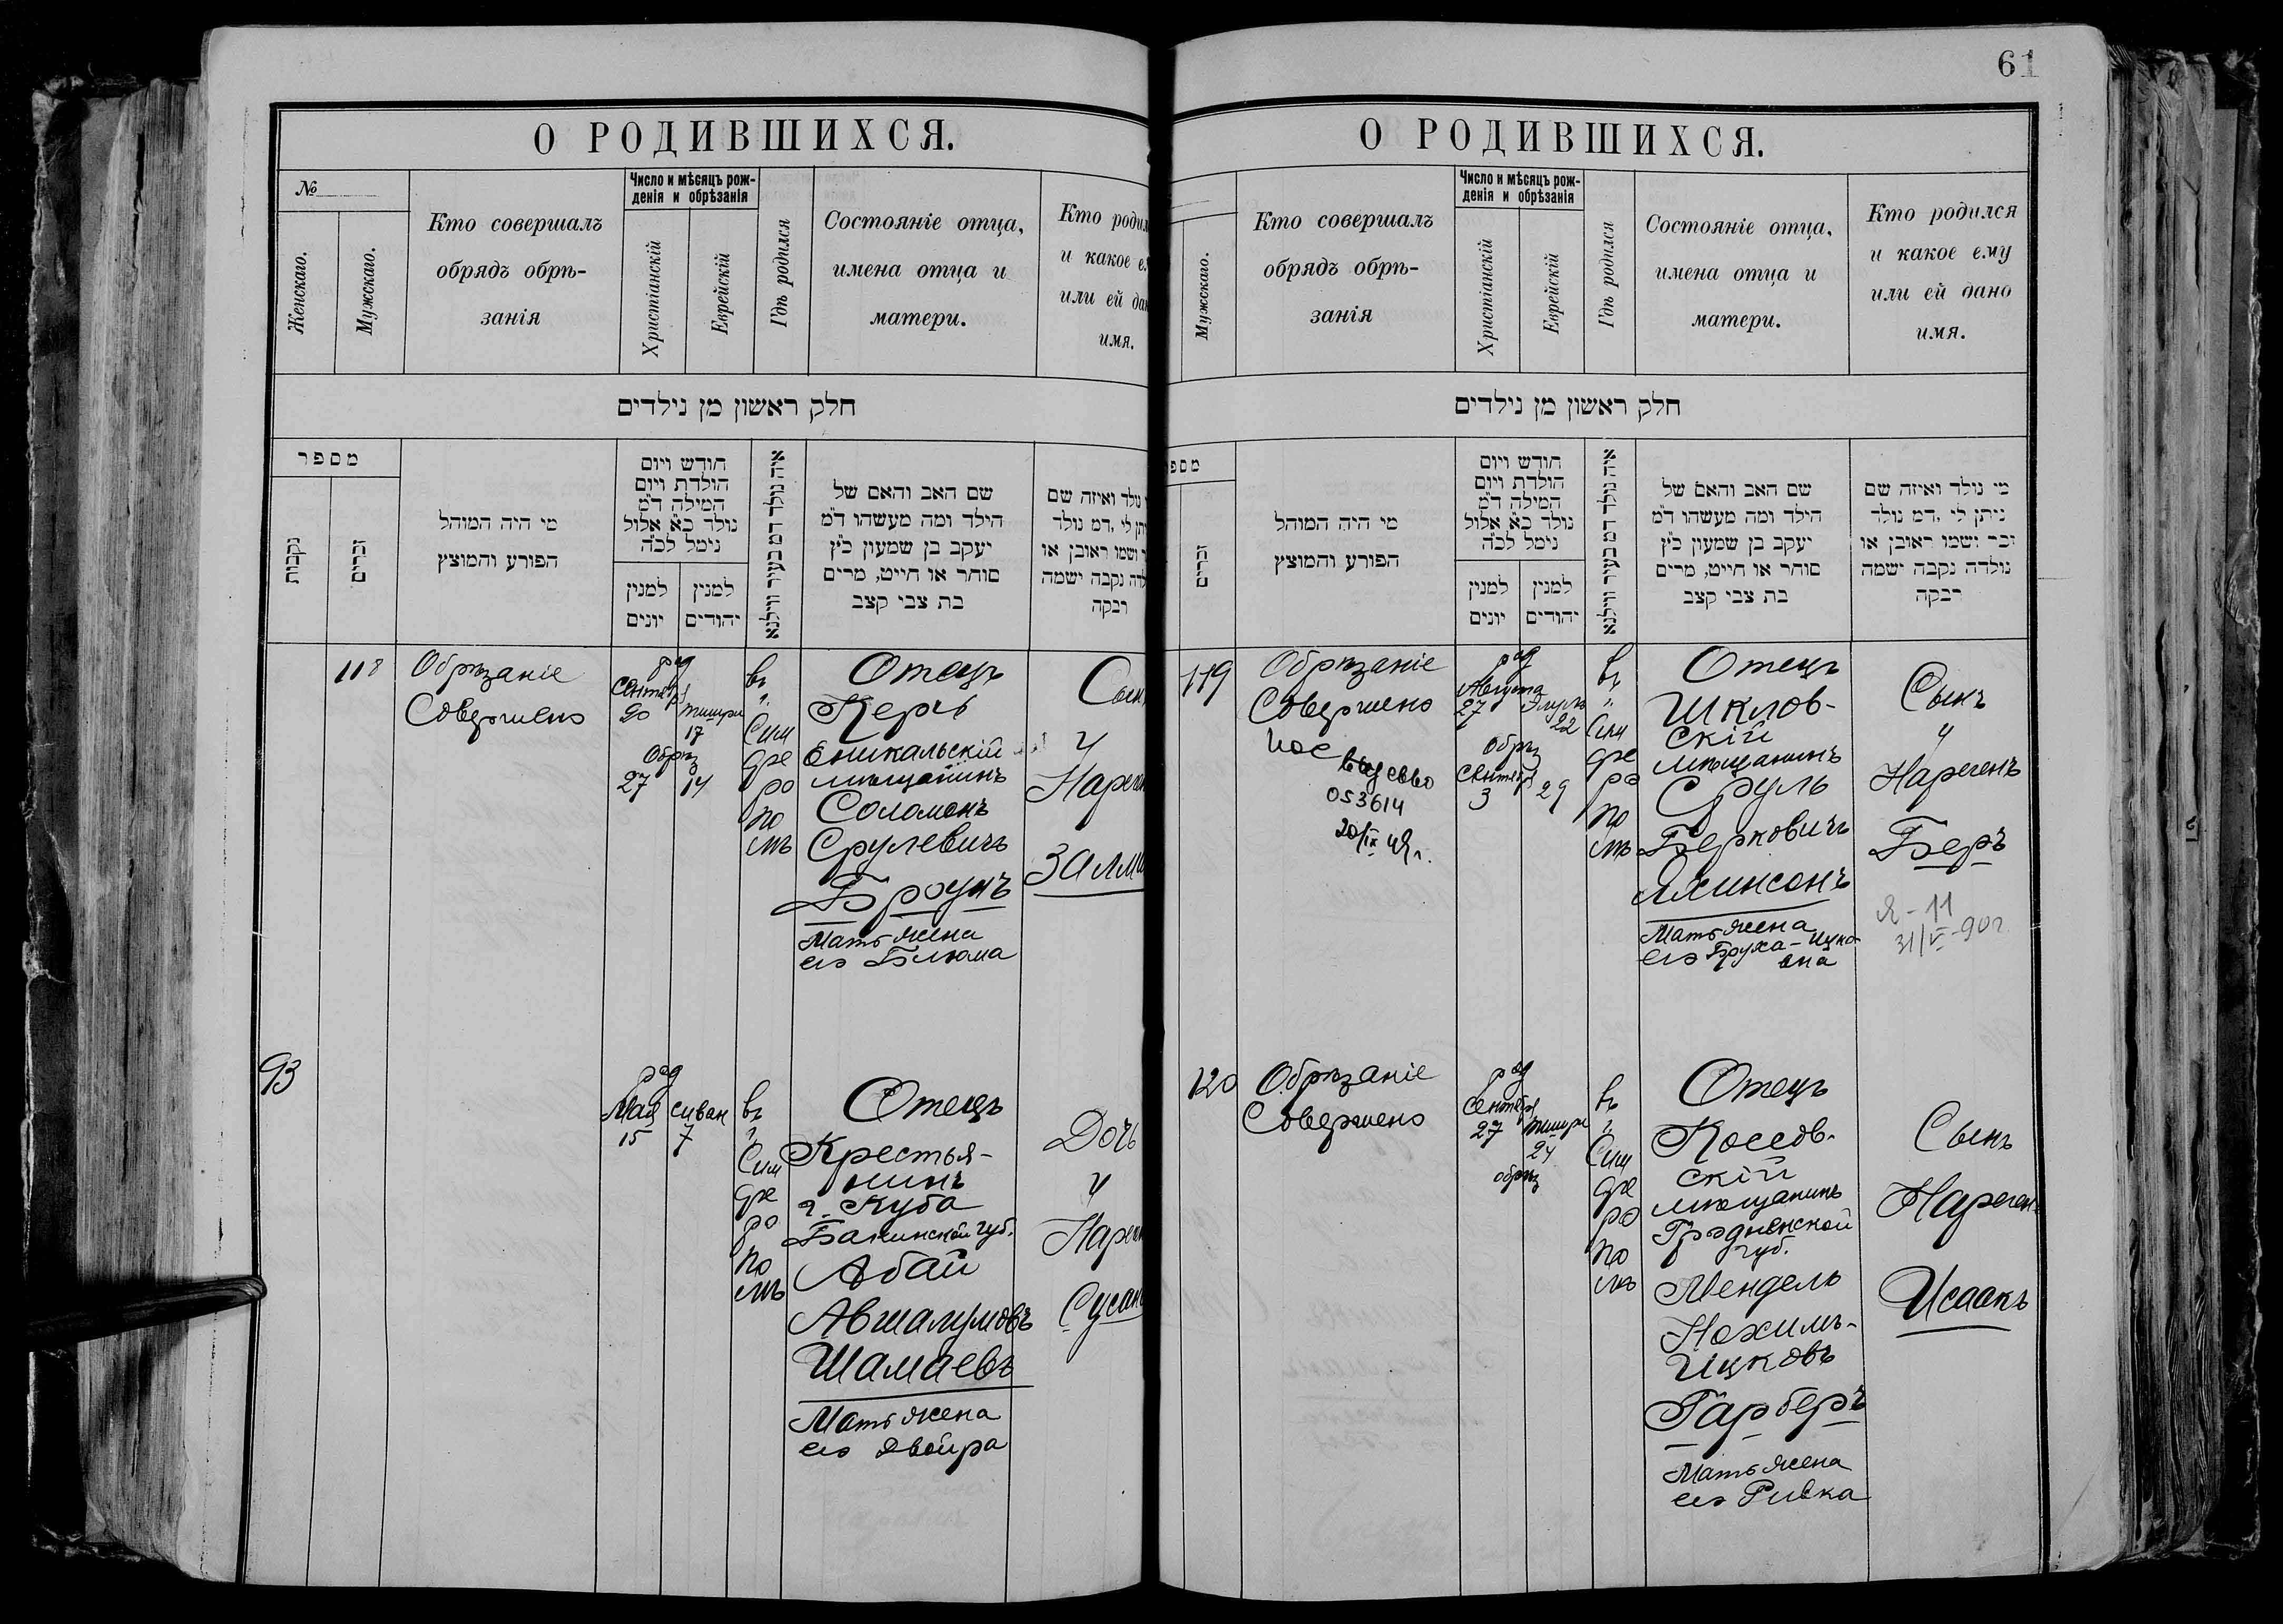 О РОДИВШИХСЯ.
№
Женскаго.
Мужскаго.
Кто совершалъ
обрядъ обрѣ-
занія
Число и мѣсяцъ рож-
денія и обрѣзанія
Христіанскій
Еврейскій
Гдѣ родился
Состояніе отца,
имена отца и
матери.
Кто родил
и какое е
или ей да
имя.
חלק ראשון מן נילדים
מספר
נקבות
זכרים
מי היה המוהל
הפורע והמוצץ
חודש ויום
הולדת ויום
המילה ד״מ
נולד כ״א אלול
נימל לכ״ה
למנין
יונים
למנין
יהודים
איה נולד דמ בעיר ווילנא
שם האב והאם של
הילד ומה מעשהו ד״מ
יעקב בן שמעון כ״ץ
סוחר או חייט, מרים
בת צבי קצב
נולד ואיזה שם
לי ,דמ נולד
ושמו ראובן או
נקבה ישמה
רבקה
118
Обрѣзаніе
Совершено
род
Сентяб
20
Тишри
17
Обрѣз
27
14
въ
г.
Сим
фе
ро
по
лѣ
Отецъ
Керчь
Еникальскій
мѣщанинъ
Соломонъ
Срулевичъ
Броунъ
Мать жена
его Блюма
Сын
и
Нарече
Залм
93
род
Мая
15
сиван
7
въ
г.
Сим
фе
ро
по
лѣ
Отецъ
Крестья-
нинъ
г. Куба
Бакинской губ.
Абай
Авшалумовъ
Шамаевъ
Мать жена
его Двойра
Дочь
и
Нарече
Сусан
61
О РОДИВШИХСЯ.
Мужскаго.
Кто совершалъ
обрядъ обрѣ-
занія
Число и мѣсяцъ рож-
денія и обрѣзанія
Христіанскій
Еврейскій
Гдѣ родился
Состояніе отца,
имена отца и
матери.
Кто родился
и какое ему
или ей дано
имя.
חלק ראשון מן נילדים
מספ
זכרים
מי היה המוהל
הפורע והמוצץ
חודש ויום
הולדת ויום
המילה ד״מ
נולד כ״א אלול
נימל לכ״ה
למנין
יונים
למנין
יהודים
איה נולד דמ בעיר ווילנא
שם האב והאם של
הילד ומה מעשהו ד״מ
יעקב בן שמעון כ״ץ
סוחר או חייט, מרים
בת צבי קצב
מי נולד ואיזה שם
ניתן לי ,דמ נולד
זכר ושמו ראובן או
נולדה נקבה ישמה
רבקה
119
Обрѣзаніе
Совершено
053614
20/IX 49г.
род
Августа
27
Элулъ
22
Обрѣз
Сентября
3
29
въ
г.
Сим
фе
ро
по
лѣ
Отецъ
Шклов-
скій
мѣщанинъ
Сруль
Берковичъ
Яхинсонъ
Мать жена
его Бруха-
Сынъ
и
Нареченъ
Беръ
Я-11
31/V-90г
120
Обрѣзаніе
Совершено
род
Сентября
27
Тишри
24
обрѣз
въ
г.
Сим
фе
ро
по
лѣ
Отецъ
Коссов-
скій
мѣщанинъ
Гродненской
губ.
Мендель
Нохимъ-
Ицковъ
Гарберъ
Мать жена
его Ривка
Сынъ
Наречен
Исаакъ